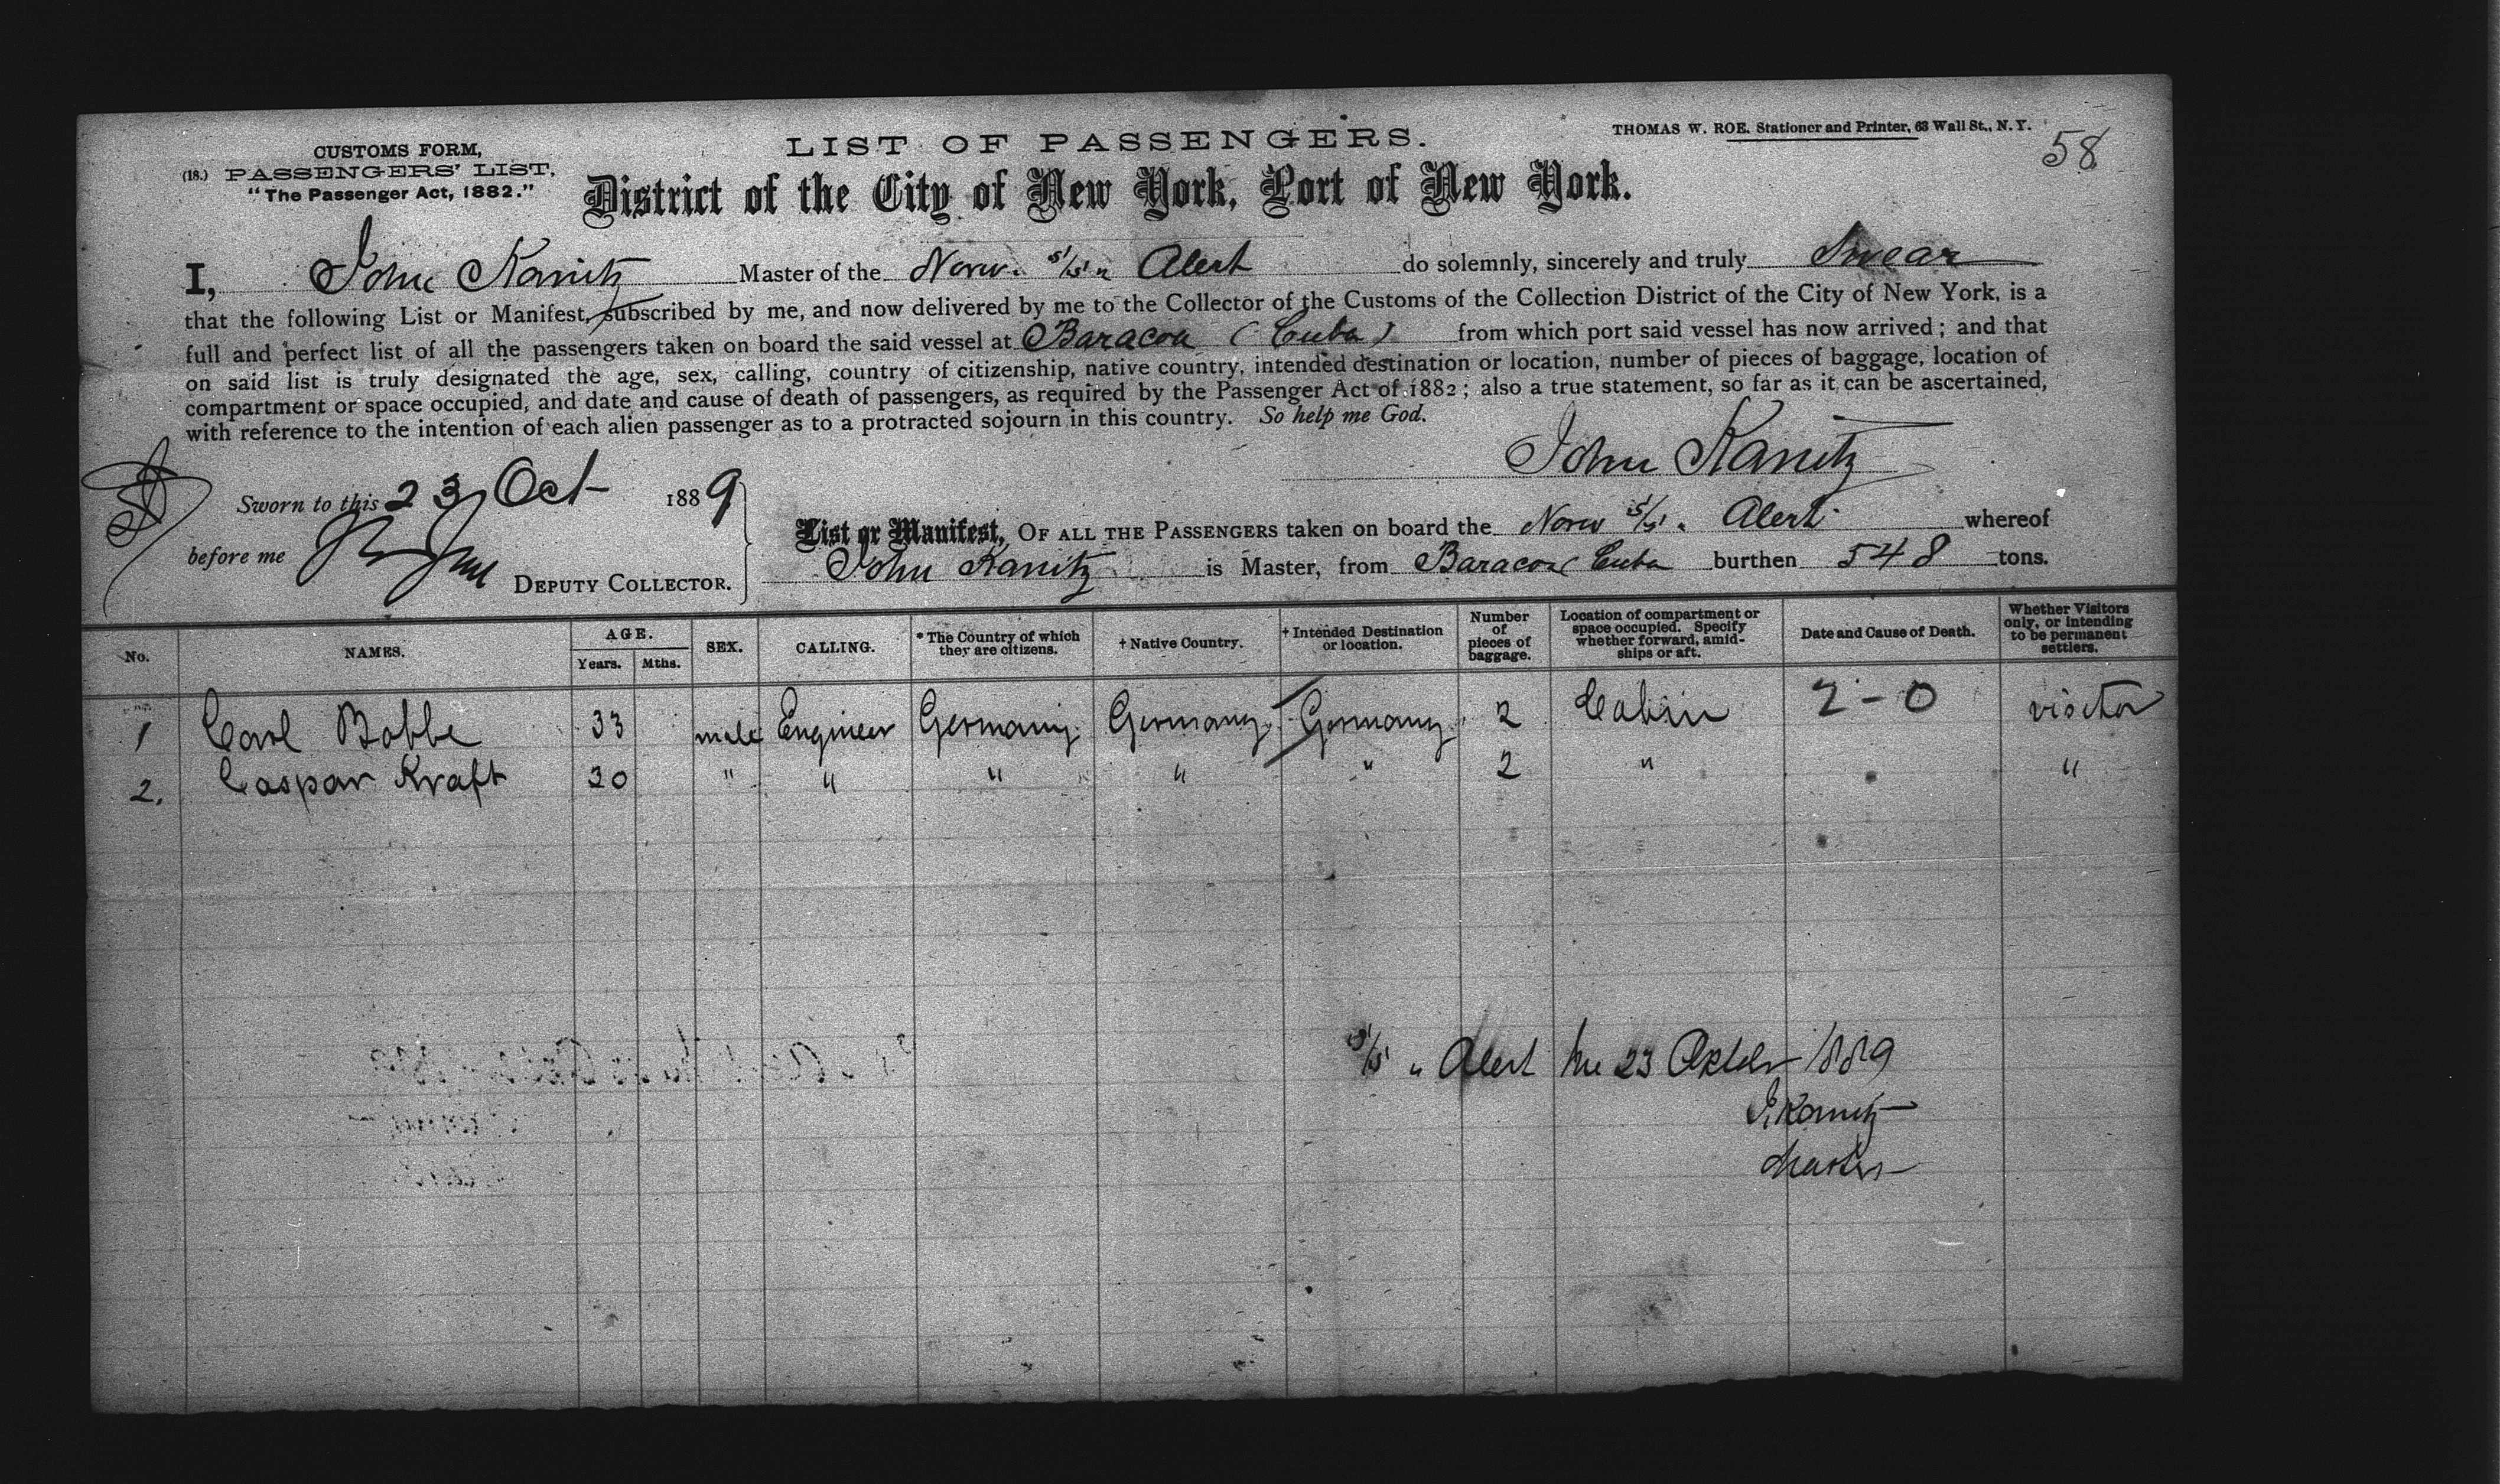 CUSTOMS FORM,
(18.) PASSENGERS' LIST,
"The Passenger Act, 1882."
LIST OF PASSENGERS.
THOMAS W. ROE, Stationer and Printer, 63 Wall St., N. Y.
58
District of the City of New York, Port of New York.
I, John Kanitz Master of the Norw. S/S " Alert do solemnly, sincerely and truly Swear
that the following List or Manifest, subscribed by me, and now delivered by me to the Collector of the Customs of the Collection District of the City of New York, is a
full and perfect list of all the passengers taken on board the said vessel at Baracoa (Cuba) from which port said vessel has now arrived; and that
on said list is truly designated the age, sex, calling, country of citizenship, native country, intended destination or location, number of pieces of baggage, location of
compartment or space occupied, and date and cause of death of passengers, as required by the Passenger Act of 1882; also a true statement, so far as it can be ascertained,
with reference to the intention of each alien passenger as to a protracted sojourn in this country. So help me God.
John Kanitz
Sworn to this 23 Oct 1889
before me
DEPUTY COLLECTOR.
List or Manifest, OF ALL THE PASSENGERS taken on board the Norw S/S " Alert whereof
John Kanitz is Master, from Baracoa Cuba burthen 548 tons.
No. NAMES. AGE. Years. Mths. SEX. CALLING. * The Country of which they are citizens. † Native Country. † Intended Destination or location. Number of pieces of baggage. Location of compartment or space occupied. Specify whether forward, amidships or aft. Date and Cause of Death. Whether Visitors only, or intending to be permanent settlers.
1 Carl Bobbe 33 male Engineer Germany Germany Germany 2 Cabin 2-0 visitor
2. Caspar Kraft 30 " " " " " 2 " "
S/S " Alert the 23 October 1889
J. Kanitz
Master